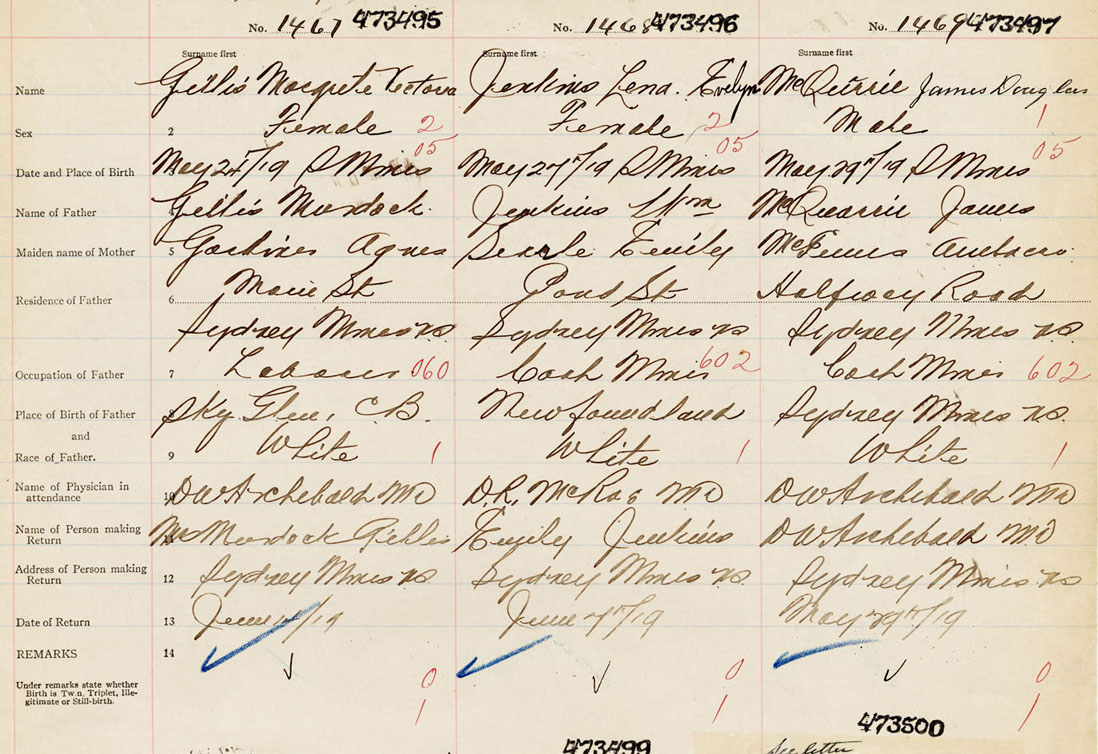 No. 1467 473495 No. 1468 473496 No. 1469 473497
Surname first Surname first Surname first
Name Gillis Margrete Victoria Jenkins Lena. Evelyn McQurrie James Douglas
Sex 2 Female 2 Female 2 Male 1
05 05 05
Date and Place of Birth May 21st/19 S Mines May 27th/19 S Mines May 29th/19 S Mines
Name of Father Gillis Murdock. Jenkins Wm McQuarrie James
Maiden name of Mother 5 Agnes Searle Emily
Residence of Father 6 Main St Pond St Halfway Road
Sydney Mines NS Sydney Mines NS Sydney Mines NS
Occupation of Father 7 Laborer 060 Coal Miner 602 Coal Miner 602
Place of Birth of Father 8 Sky Glen, C.B. Newfoundland Sydney Mines NS
and
Race of Father. 9 White 1 White 1 White 1
Name of Physician in
attendance 10 DW Archebald MD D.R. McRae MD DW Archebald MD
Name of Person making
Return 11 Mrs Murdock Gillis Emily Jenkins DW Archebald MD
Address of Person making
Return 12 Sydney Mines NS Sydney Mines NS Sydney Mines NS
Date of Return 13 June /19 June 7th/19 May 29th/19
REMARKS 14
Under remarks state whether
Birth is Twin, Triplet, Ille-
gitimate or Still-birth.
0 0 0
1 1 1
473499 473500
See letter